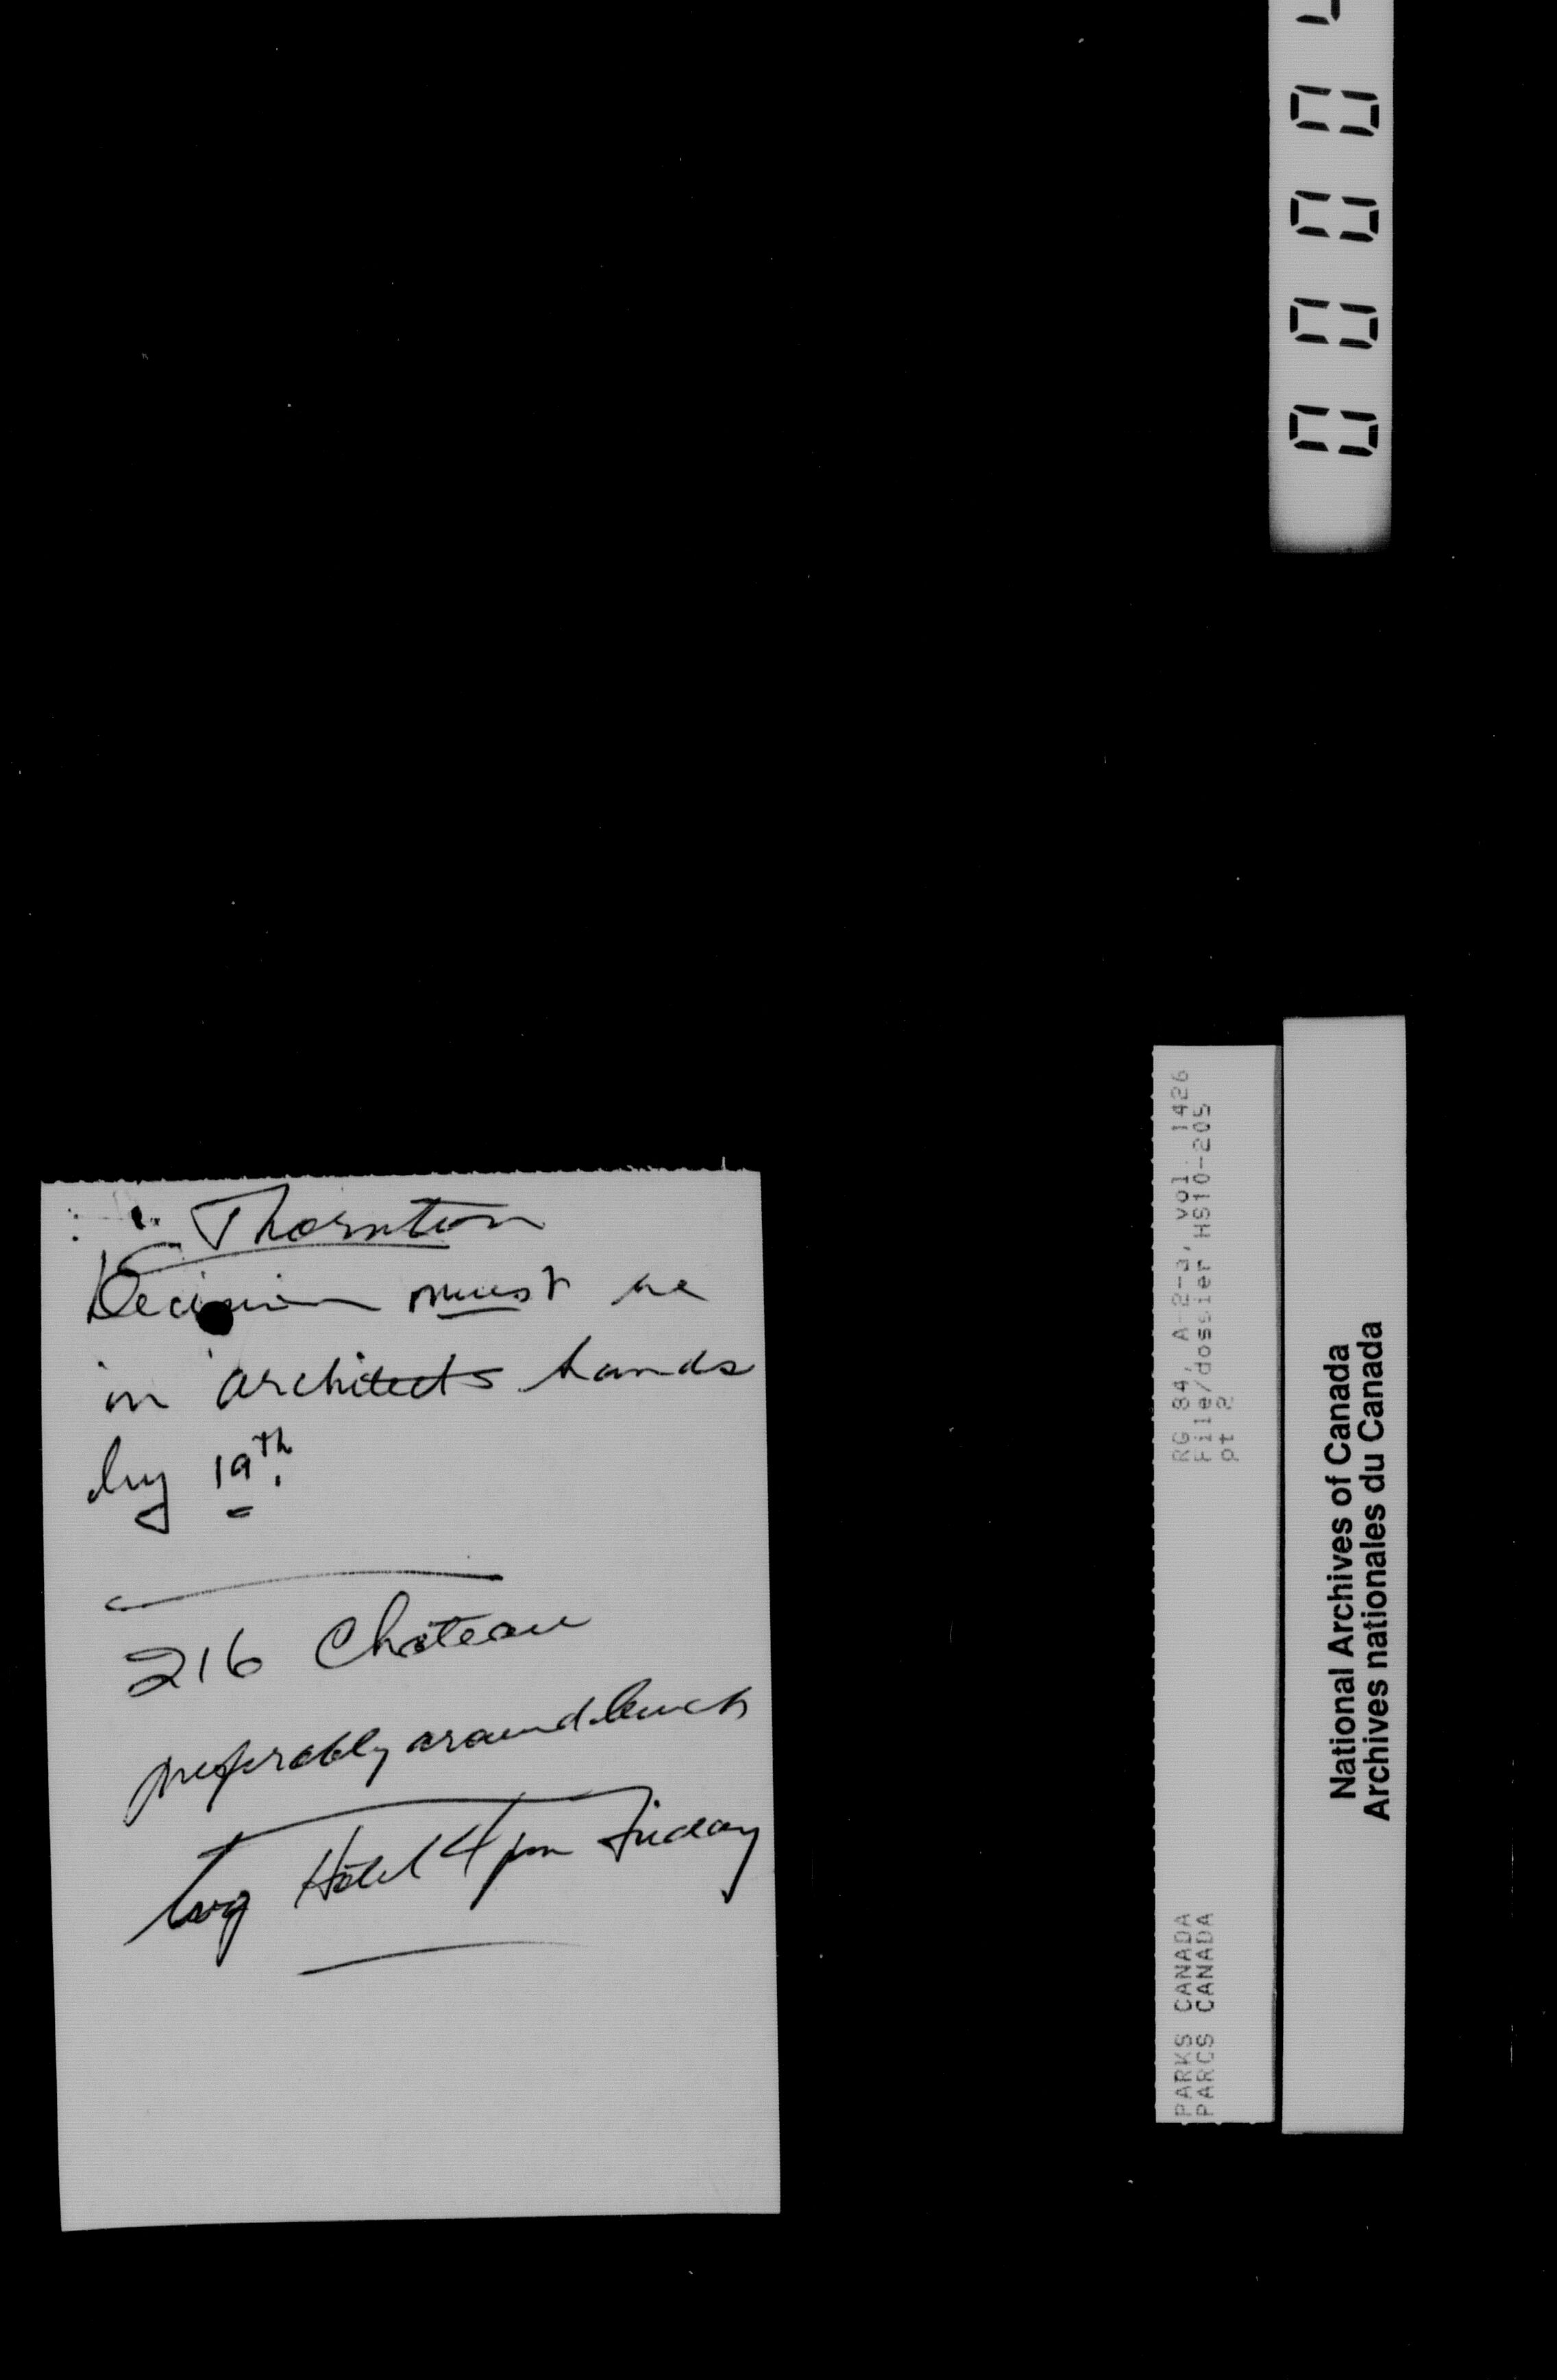 Thornton
Decision must be
in architects hands
by 19th.
216 Chateau
preferably around lunch
lvg Hotel 4 pm Friday
0000
RG 84, A-2-a, vol 1426
File/dossier HS10-205
pt 2
PARKS CANADA
PARCS CANADA
National Archives of Canada
Archives nationales du Canada